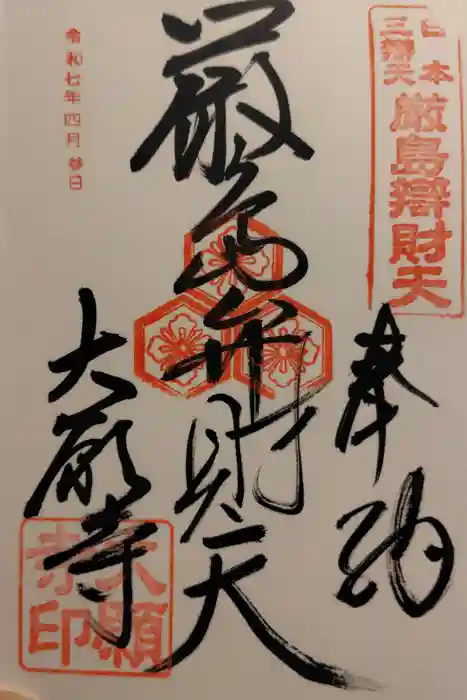 日本
三辯天
厳島辯財天
奉納
厳島弁財天
令和七年四月参日
大願寺
大願
寺印